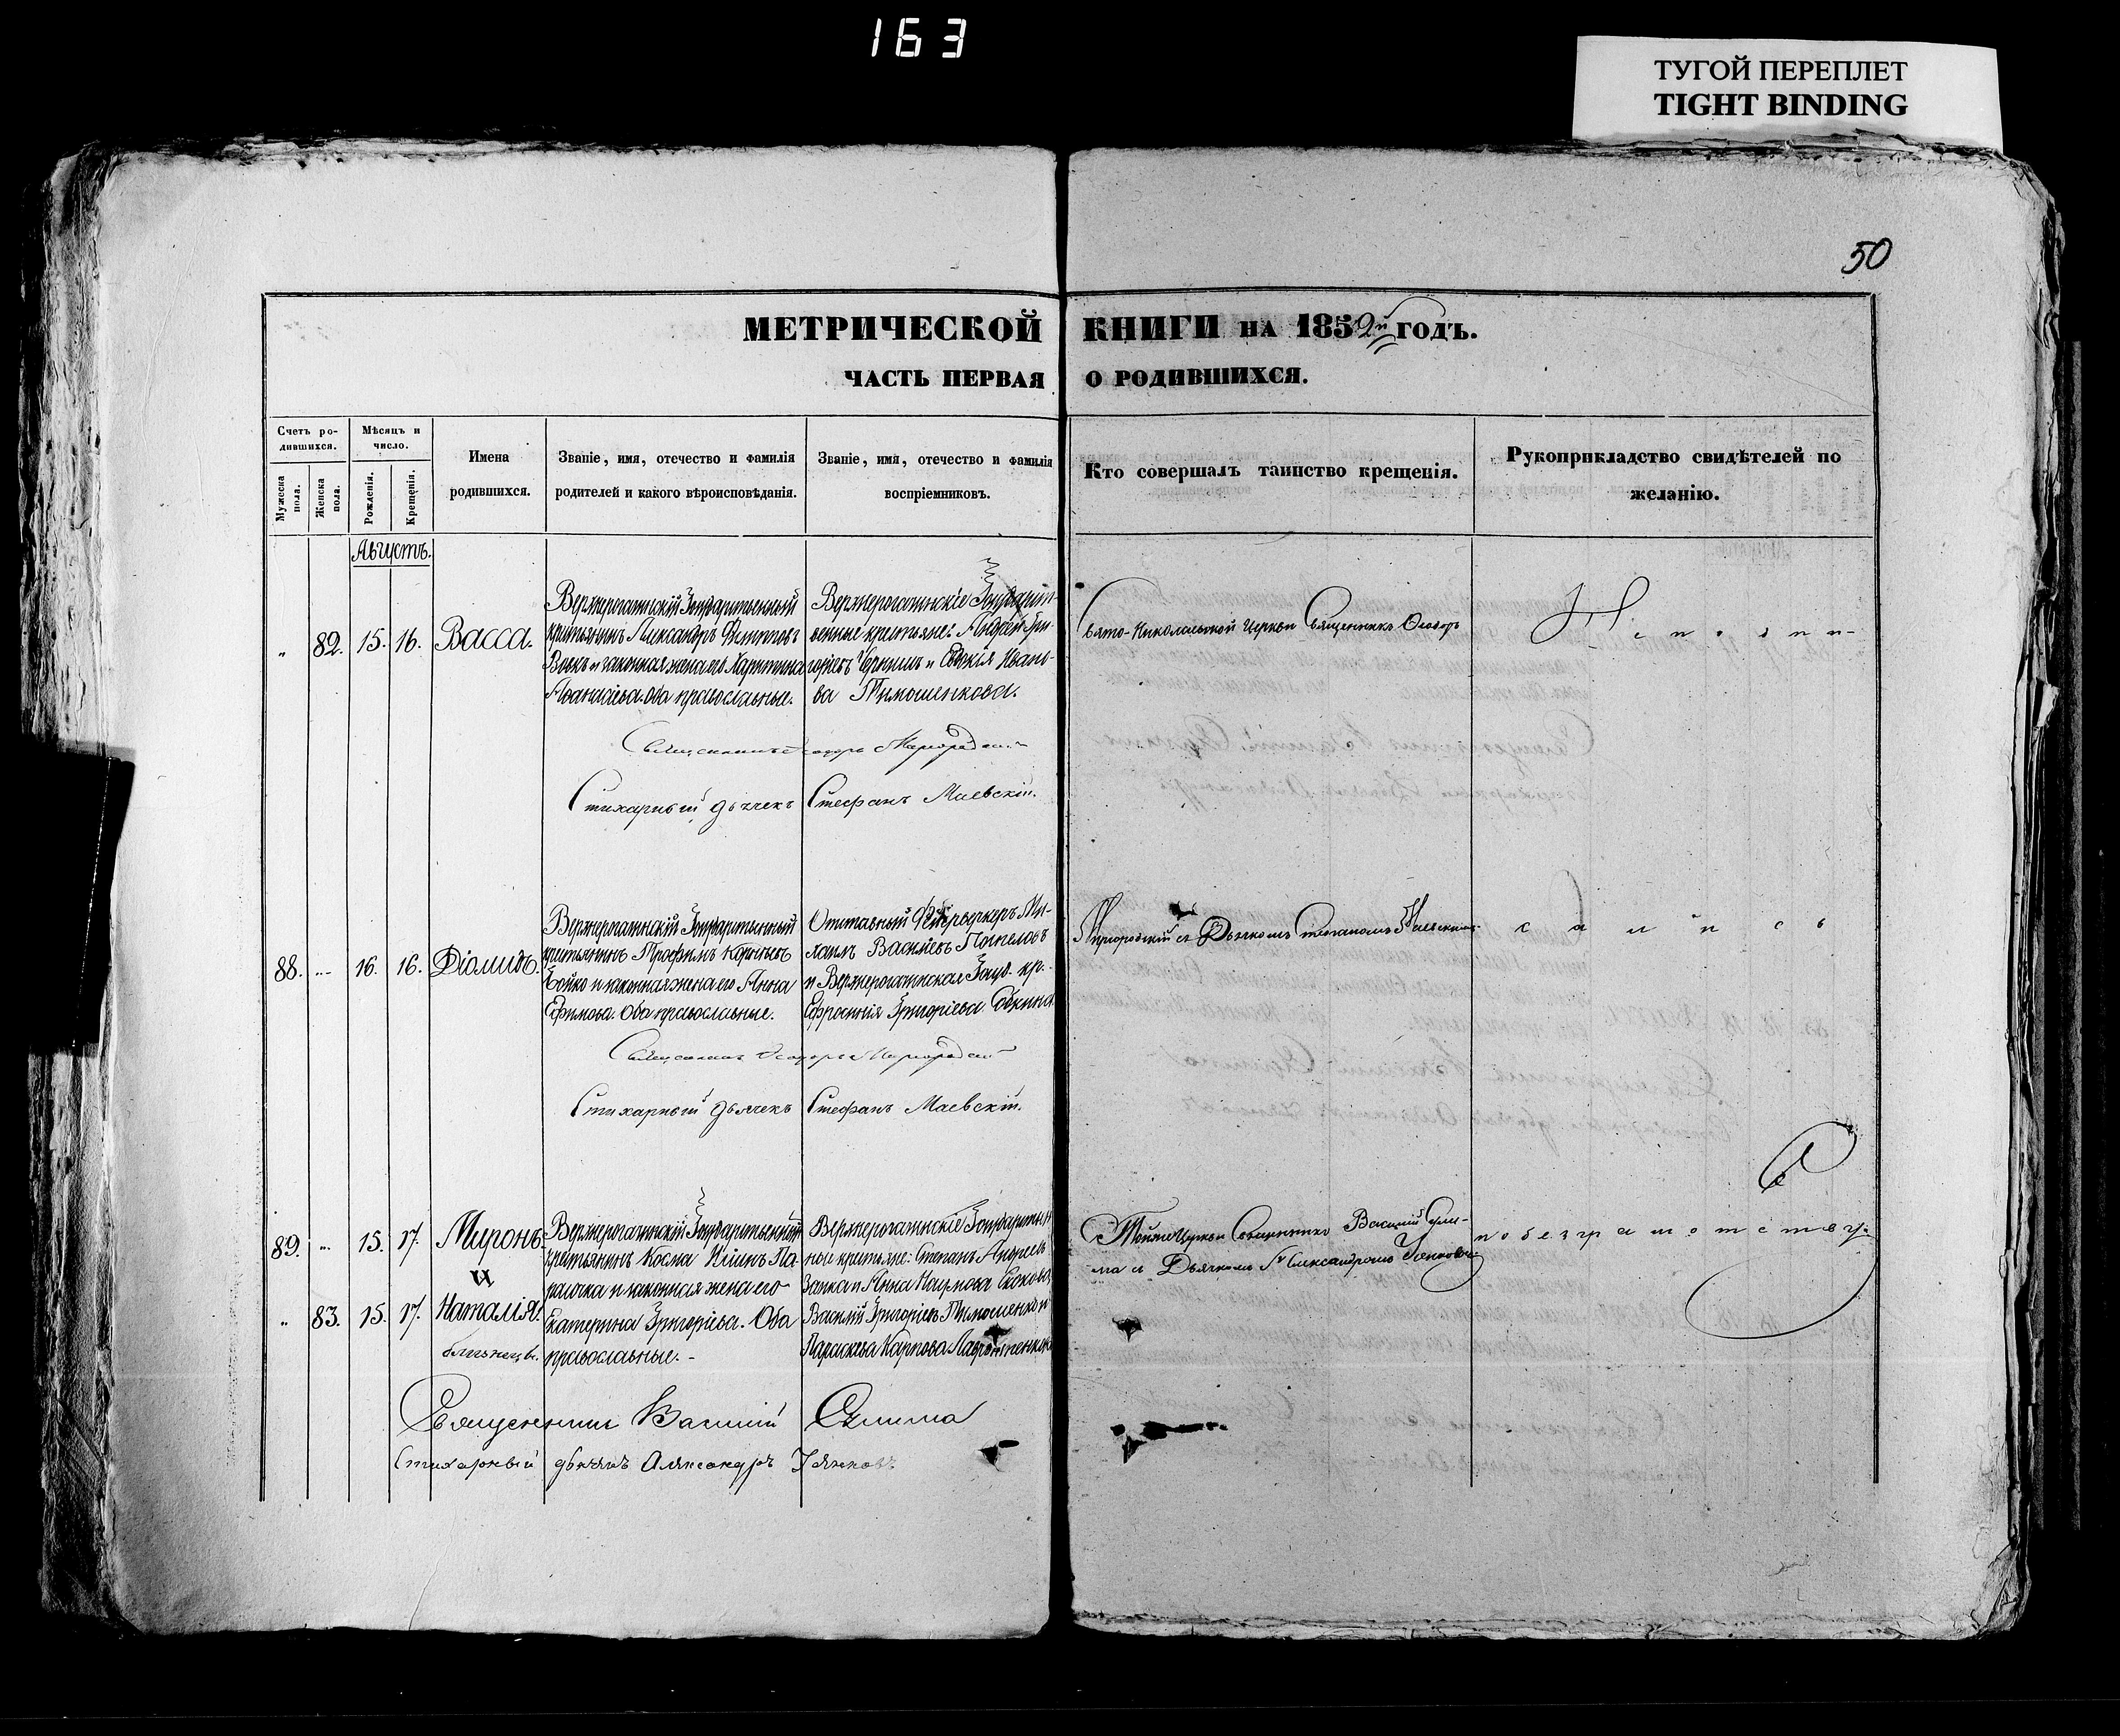 163
ТУГОЙ ПЕРЕПЛЕТ
TIGHT BINDING
50
МЕТРИЧЕСКОЙ КНИГИ НА 1852й ГОДЪ.
ЧАСТЬ ПЕРВАЯ О РОДИВШИХСЯ.
Счетъ ро-
дившихся.
Мужеска пола.
Женска пола.
Мѣсяцъ и
число.
Рожденія.
Крещенія.
Имена
родившихся.
Званіе, имя, отечество и фамилія
родителей и какого вѣроисповѣданія.
Званіе, имя, отечество и фамилія
воспріемниковъ.
Кто совершалъ таинство крещенія.
Рукоприкладство свидѣтелей по
желанію.
Августъ.
„ 82. 15. 16. Васса.
Верхнерогачикскій
крестьянинъ Александръ Филиповъ
Вовкъ и законная жена его Харитина
Аѳанасіева. оба православные.
Верхнерогачикскіе
венные крестьяне: Андрей Гри-
горіевъ Чернышъ и Евдокія Ивано-
ва Тимошенкова.
Свято-Николаевской Церкви Священникъ Ѳеодоръ
Священникъ Ѳеодоръ Миргородскій
Стихарный дьячекъ Стефанъ Маевскій.
88. „ 16. 16. Діомидъ.
Верхнерогачикскій
крестьянинъ Трофимъ
Бойко и законная жена его Анна
Ефимова. Оба православные.
Отставный Фейерверкеръ Ми-
хаилъ Василіевъ
и Верхнерогачикская кр.
Евфросинія Григоріева
Миргородскій съ Дьячкомъ Стефаномъ Маевскимъ
Священникъ Ѳеодоръ Миргородскій
Стихарный дьячекъ Стефанъ Маевскій.
89. „ 15. 17. Миронъ
и
„ 83. 15. 17. Наталія.
близнецы.
Верхнерогачикскій
крестьянинъ Косма
и законная жена его
Екатерина Григоріева. Оба
православные.
Верхнерогачикскіе
ные крестьяне: Степанъ Андреевъ
Заика и Анна Наумова
Василій Григоріевъ Тимошенко и
Параскева Карпова
Тойже Церкви Священникъ Василій Сули-
ма съ Дьячкомъ Александромъ
по безграмотству.
Священникъ Василій Сулима
Стихарный дьячекъ Александръ